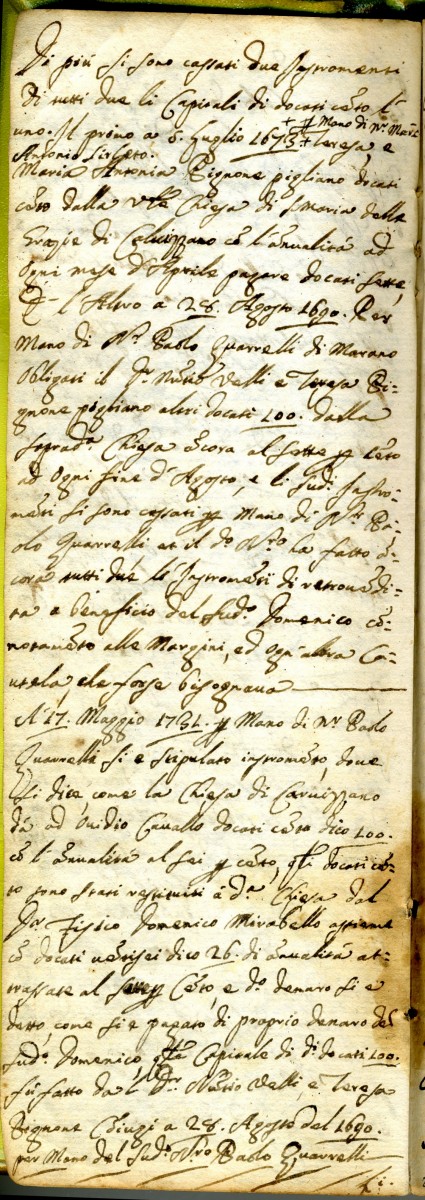 Di più si sono cassati due Instromenti
di tutti due li Capitali di docati cẽto l'
uno. Il primo a 5. Luglio 1673 + Teresa, e
+ p Mano di Nr. Marc'
Antonio
Maria Antonia Pignone pigliano docati
cẽto dalla Chiesa di S. Maria della
Grazie di Calvizzano cõ l'ãnualità ad
ogni mese d'Aprile pagare docati sette,
l'Altro a 28. Agosto 1690. Per
Mano di Nr. Pablo Quarrelli di Marano
obligati il Dr. Nuntio Velli e Teresa Pi-
gnone pigliano altri docati 100. dalla
soprad.ª Chiesa ãcora al sette p cẽto
ad ogni fine d'Agosto, e li sud.i Instro-
mẽti si sono cassati p Mano di Nr. Pa-
olo Quarrelli et il d.º N.ro ha fatto ã-
cora tutti due li Instromẽti di retrovẽdi-
ta a beneficio del sud.º Domenico cõ-
notamẽto alle Margini, ed ogn'altra Ca-
utela, che forse bisognava
A 17. Maggio 1731. p Mano di Nr. Paolo
Quarrelli si è stipulato instromẽto, dove
si dice, come la Chiesa di Carvizzano
dà ad Ovidio Cavallo docati cẽto dico 100.
cõ l'ãnualità al sei p cẽto, q.li docati cẽ-
to sono stati restituiti a d.ª Chiesa dal
Dr. Fisico Domenico Mirabello assieme
cõ docati vẽtisei dico 26. di ãnualità at-
trassate al sette p Cẽto, e d.º denaro si è
detto, come si è pagato di proprio denaro del
sud.º Domenico, Capitale di d.i docati 100.
fù fatto dal Dr. Nuntio Velli, e Teresa
Pignone Coniugi a 28. Agosto del 1690.
per Mano del sud.º N.ro Pablo Quarrelli
Li